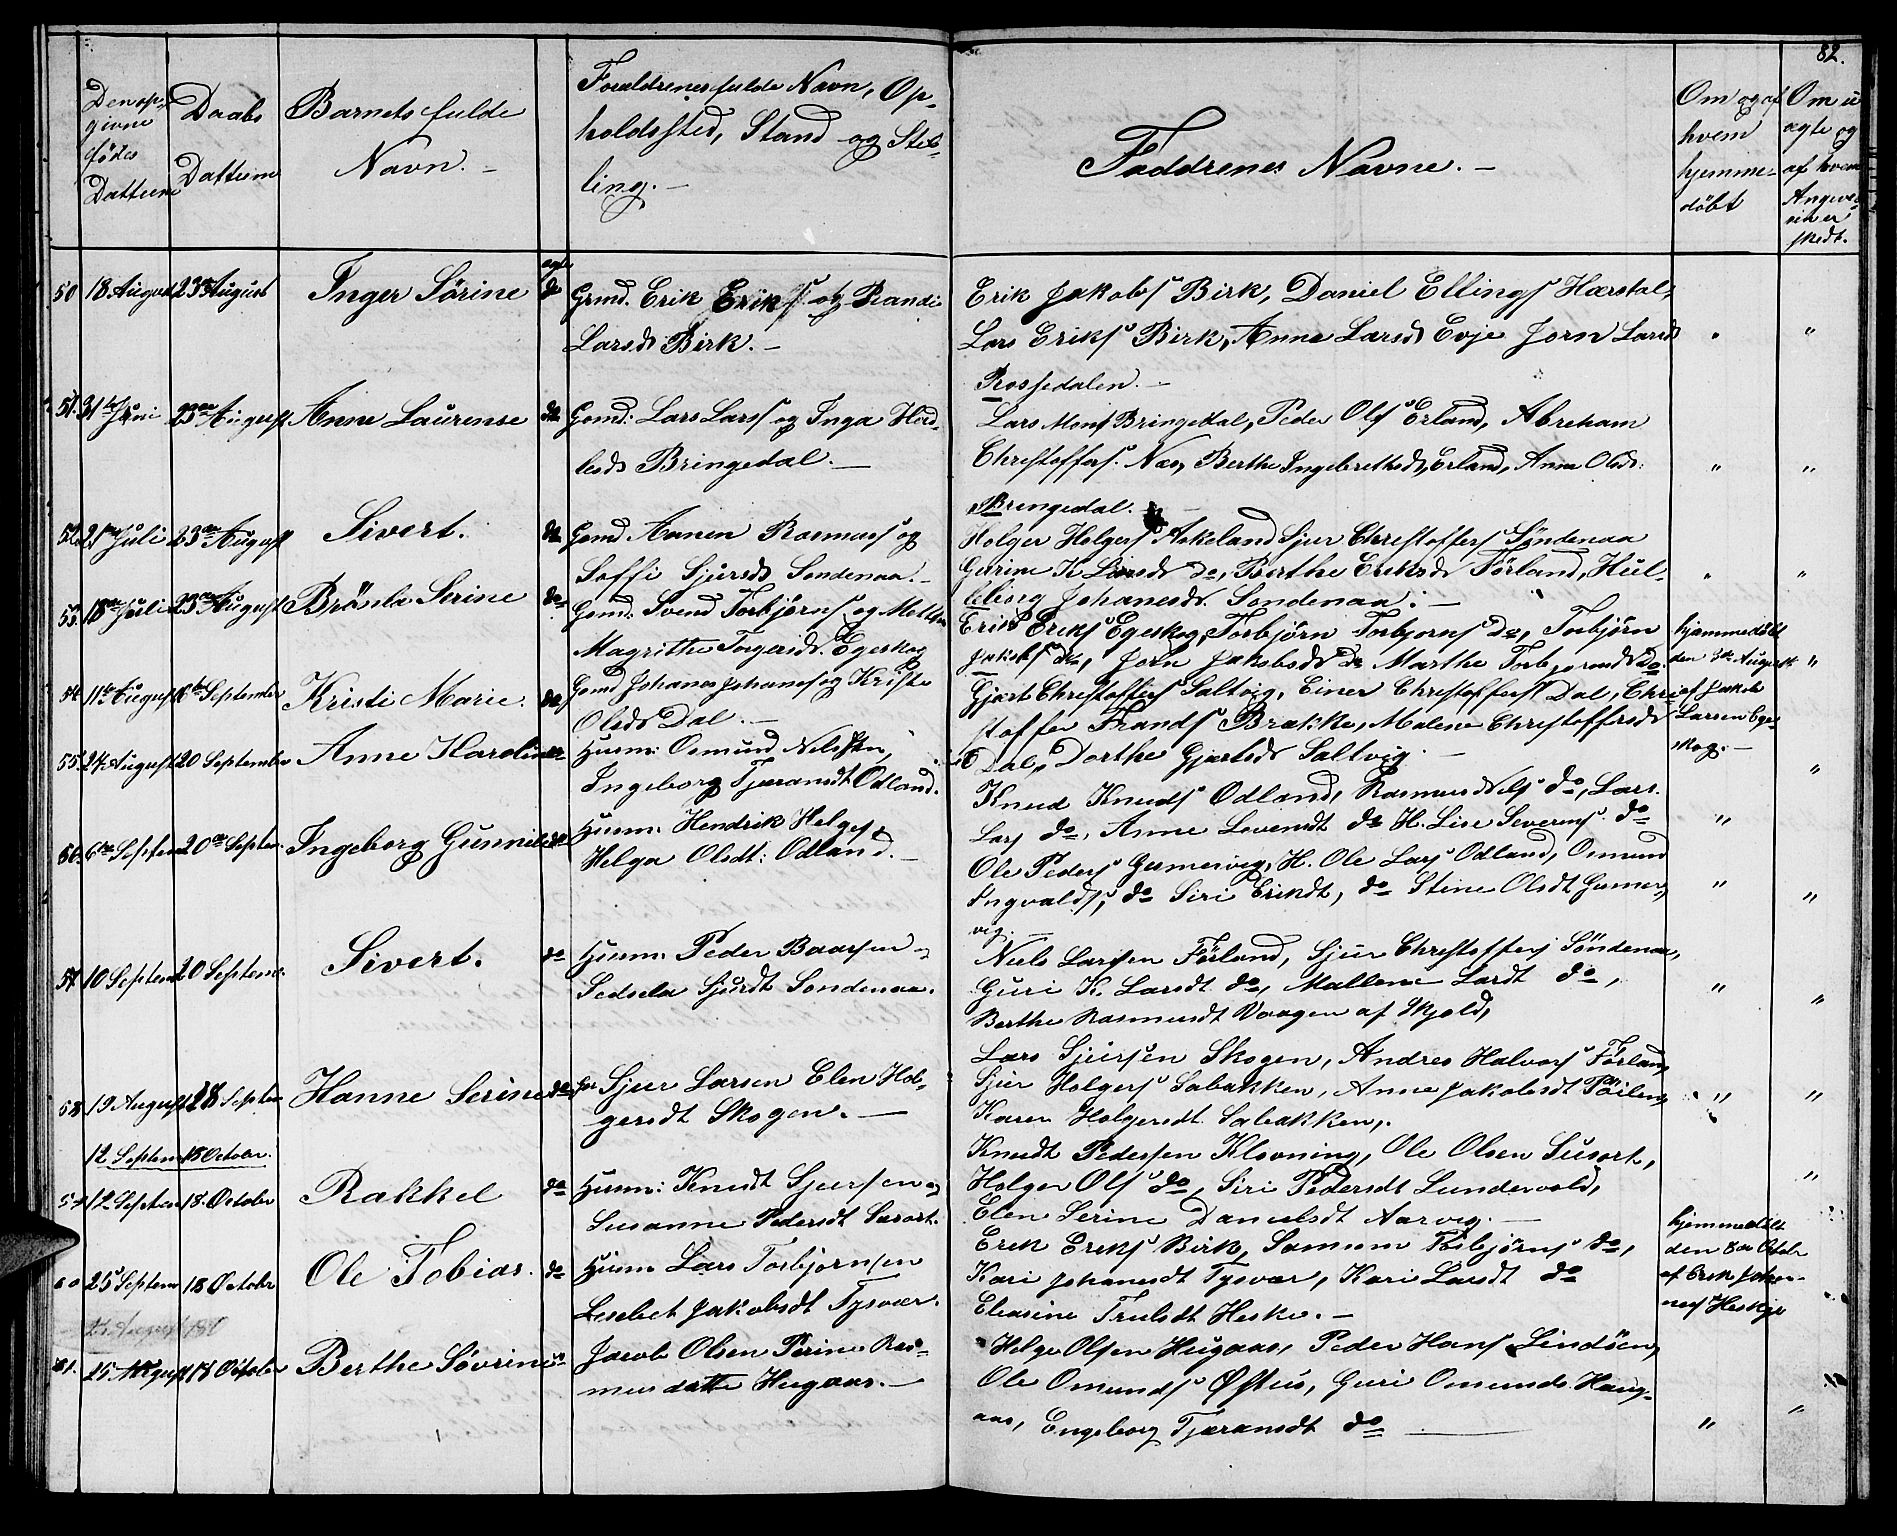 82.
Den op-
givne
fødes
Dattum
Daabs
Dattum
Barnets fulde
Navn. -
Forældrenes fulde Navn, Op-
holdssted, Stand og Stel-
ling. -
Faddrenes Navne. -
Om og af
hvem
hjemme-
døbt
Om u
ægte og
af hvem
Angivel-
sen er
skedt.
50 18 August 23de August Inger Sörine ægte do Grmd. Erik Eriks. og Randi
Larsd. Birk. -
Erik Jakobs Birk, Daniel Ellings Hærstal,
Lars Eriks Birk, Anne Larsd. Evje Jorn Larsd
Rossedalen. - " "
51. 31te Juni 23de August Anne Laurense do Gmd: Lars Lars og Inga
Bringedal. -
Lars Mons Bringedal, Peder Ols Erland, Abreham
Christoffers. Næs, Berthe Ingebrethsd. Erland, Anne Olsd:
Bringedal. - " "
52. 21de Juli 23de August Sivert. do Gmd Aanen Rasmus og
Soffi Sjursd. Søndenaa. -
Holger Holgers Askeland Sjur Christoffers Söndenaa
Gurine K Larsd do, Berthe Eriksd Förland, Hul-
leborg Johanesd. Søndenaa. - " "
53. 18de Juli 23de August Brönla Serine do Gmd. Svend Torbjörns og
Magrithe Torgersd. Egeskog
Erik Eriks Egeskog, Torbjörn Torbjörns do, Torbjörn
Jakobs do, Jorn Jakobsd do Marthe Torbjørnsd. do
hjemmedøbt
den August
af Jakob
Larsen Ege-
skog. - "
54. 11te August 6te September Kristi Marie. do Gmd Johanes Johanes og Kristi
Olsd. Dal. -
Gjert Christoffers Saltvig, Einer Christoffers Dal, Chri
stoffer Frands Brække, Malene Christoffersd
Dal, Dorthe Gjertsd Saltvig. - "
55. 24 August 20 September Anne Karoline Husm: Osmund Nels
Ingeborg Tjerandt Odland.
Knud Knuds Odland, Rasmus Nels do, Lars.
Lars do, Anne Sevendt do H. Lise Severins. do "
56. 6te Septem 20de Septem. Ingeborg Gunnile do Husm: Hendrik Helges,
Helga Olsdt: Odland. -
Ole Peders Gumervig, H. Ole Lars Odland, Osmund
Ingvalds, do Siri Erikdt, do Stine Olsdt Gumer,
vig. - " "
57. 10 Septem 20 Septem. Sivert. do Husm: Peder Baarsen
Sedsela Sjurdt Søndenaa.
Nels Larsen Förland, Sjur Christoffers Söndenaa,
Guri K. Larsdt do, Mallene Larsdt do,
Berthe Rasmusdt Vaagen af Skjold, " "
58 19 August 28 Septem Hanne Serine do Sjur Larsen Elen Hol-
gersdt Skogen. -
Lars Sjursen Skogen, Andres Halvors Förland
Sjur Holgers Sabakken, Anne Jakobsdt
Karen Holgersdt Sabakken, " "
12 Septem 18 October.
59 12 Septem 18. October Rakkel do Husm: Knudt Sjursen
Susanne Pedersdt Susort.
Knudt Pedersen Klovning, Ole Olsen Susort,
Holger Ols do, Siri Pedersdt Lundevold,
Elen Serine Danielsdt Aarvig. - "
60 25 Septem 18 October Ole Tobias. do Husm Lars Torbjørnsen
Lesebet Jakobsdt Tysvær.
Erik Eriks Birk, Torbjörns do,
Kari Johanesdt Tysvær, Kari Larsdt do
Eleasine Trulsdt Heske. -
hjemmedøbt
den 8de Octobr
af Erik Johan-
nes Heskje
25 August 18
61. 25 August 18 October Berthe Sövrine Jacob Olsen Perine Ras-
mus datte Hugaas. -
Helge Olsen Hugaas, Peder Hans Lindöen,
Ole Omunds Østus, Guri Omunds. Haug-
aas, Engeborg Tjeransdt do - " "